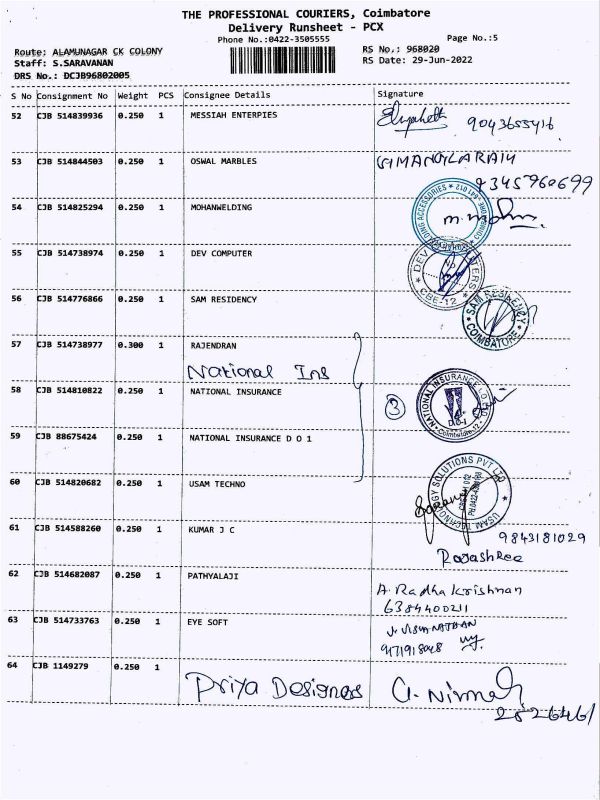 THE PROFESSIONAL COURIERS, Coimbatore
Delivery Runsheet - PCX
Phone No.:0422-3505555
Page No.:5
Route: ALAMUNAGAR CK COLONY
RS No.: 968020
Staff: S.SARAVANAN
RS Date: 29-Jun-2022
DRS No.: DCJB96802005
S No Consignment No Weight PCS Consignee Details Signature
52 CJB 514839936 0.250 1 MESSIAH ENTERPIES 9043655416
53 CJB 514844503 0.250 1 OSWAL MARBLES
9345960699
54 CJB 514825294 0.250 1 MOHANWELDING
55 CJB 514738974 0.250 1 DEV COMPUTER
CBE-12
56 CJB 514776866 0.250 1 SAM RESIDENCY
SAM RESIDENCY
COIMBATORE
57 CJB 514738977 0.300 1 RAJENDRAN
National Ins
58 CJB 514810822 0.250 1 NATIONAL INSURANCE
3
59 CJB 88675424 0.250 1 NATIONAL INSURANCE D O 1
60 CJB 514820682 0.250 1 USAM TECHNO
USAM TECHNOLOGY SOLUTIONS PVT LTD
61 CJB 514588260 0.250 1 KUMAR J C 9843181029
Rajashree
62 CJB 514682087 0.250 1 PATHYALAJI
A. Radha Krishnan
6384400211
63 CJB 514733763 0.250 1 EYE SOFT
64 CJB 1149279 0.250 1
Priya Designers
2526461